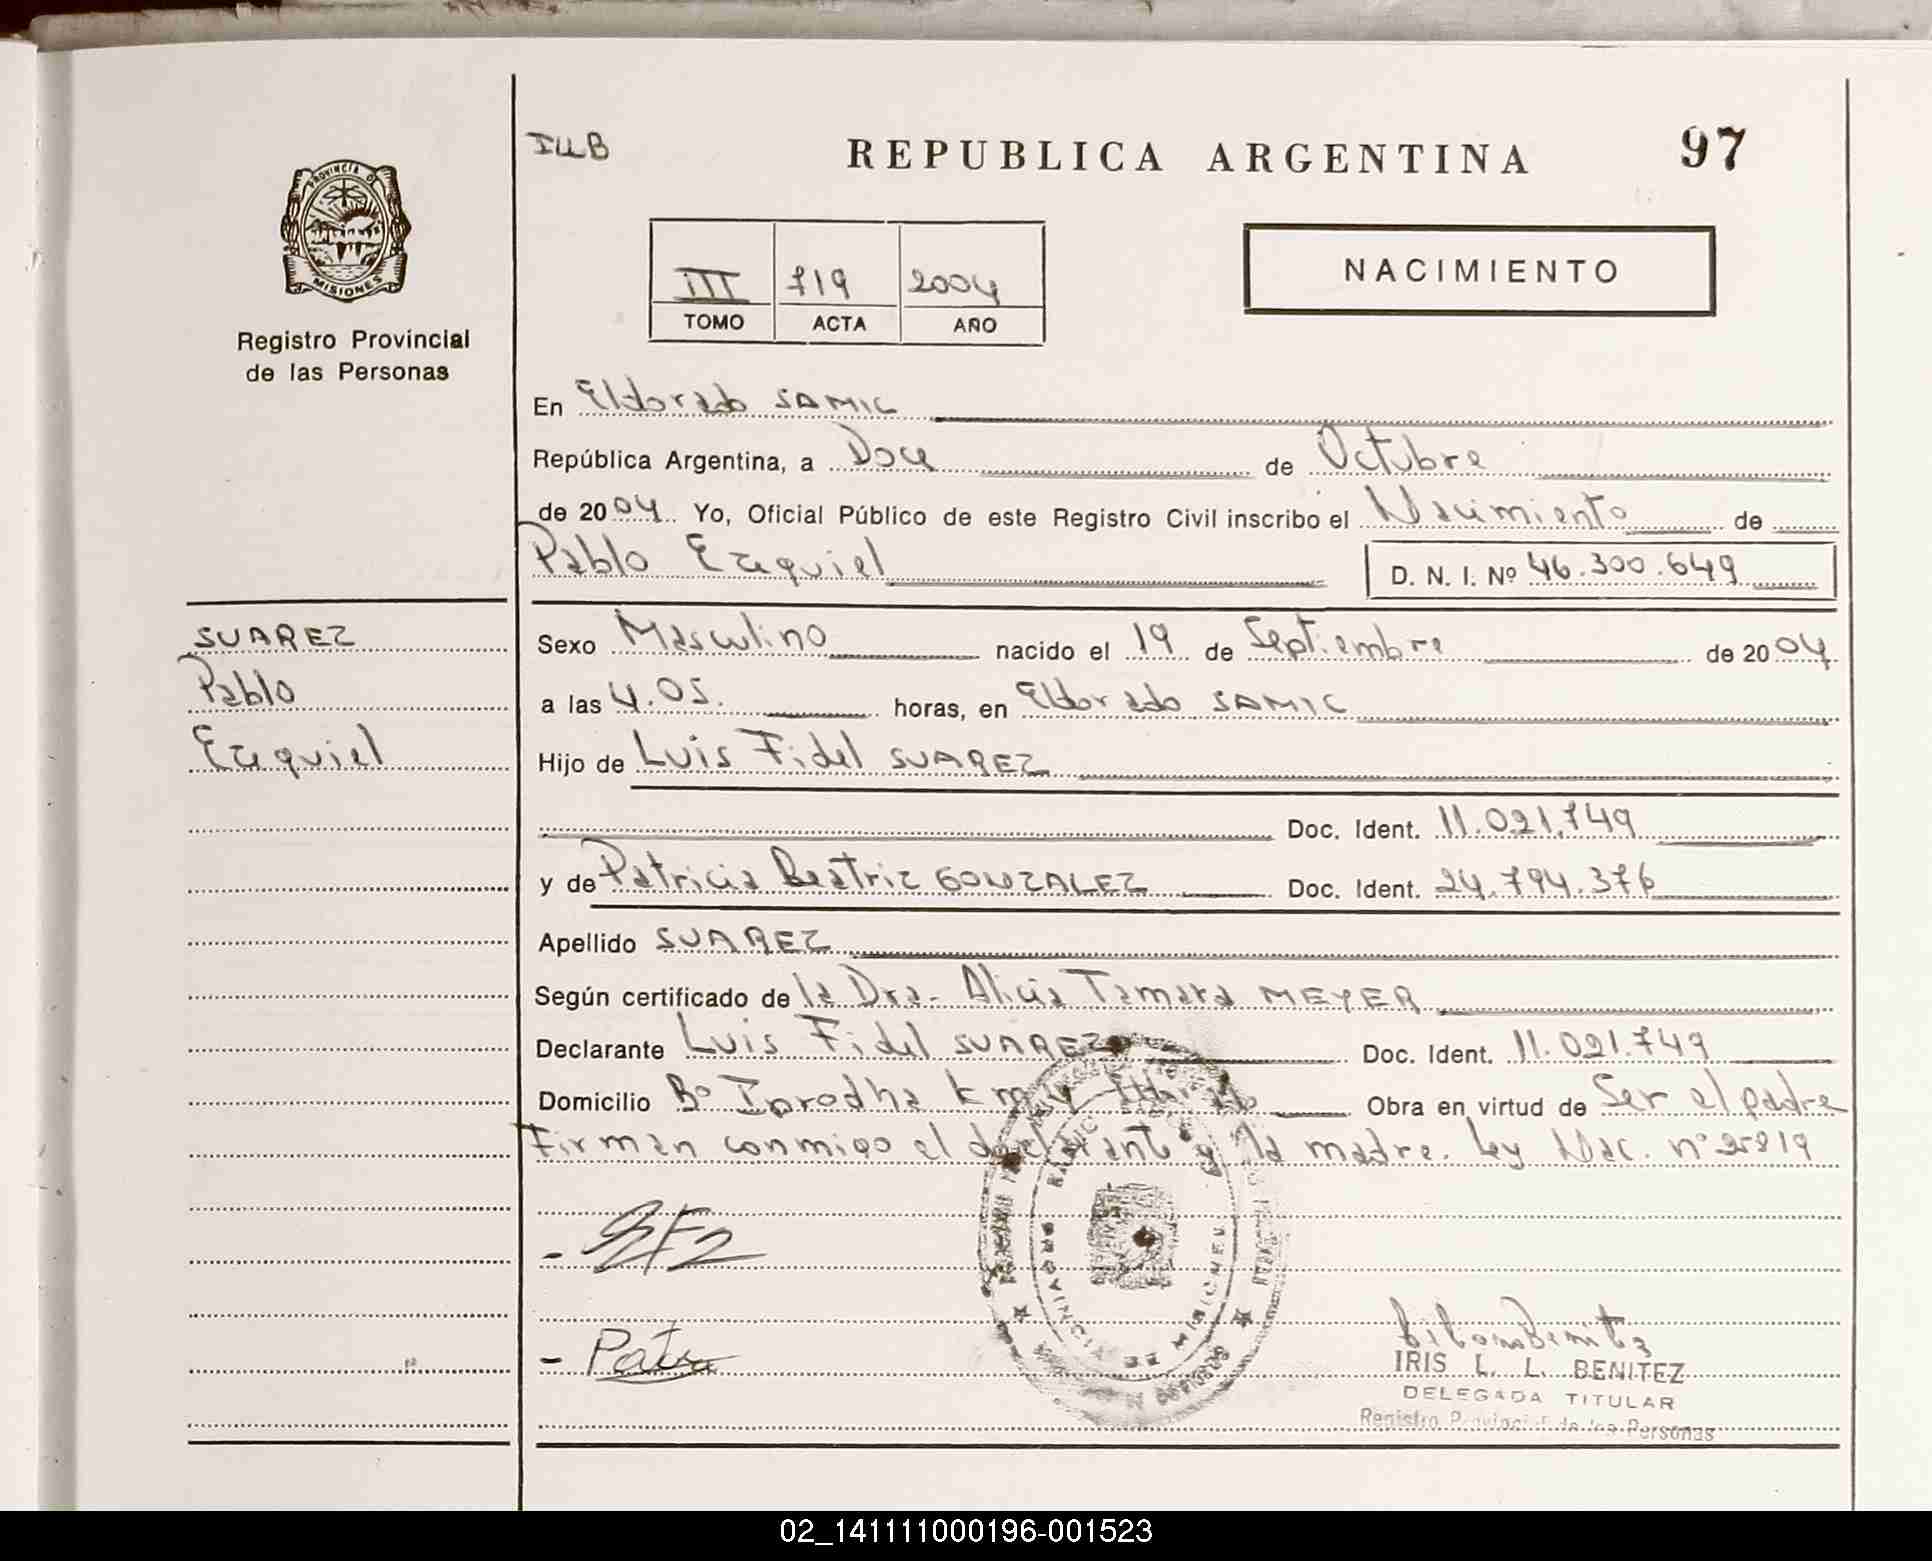 ILLB
REPUBLICA ARGENTINA
97
PROVINCIA DE
MISIONES
Registro Provincial
de las Personas
III 719 2004
TOMO ACTA AÑO
NACIMIENTO
En Eldorado SAMIC
República Argentina, a Doce de Octubre
de 2004. Yo, Oficial Público de este Registro Civil inscribo el Nacimiento de
Pablo Ezequiel D. N. I. Nº 46.300.649
SUAREZ
Pablo
Ezequiel
Sexo Masculino nacido el 19 de Septiembre de 2004
a las 4.05. horas, en Eldorado SAMIC
Hijo de Luis Fidel SUAREZ
Doc. Ident. 11.021.749
y de Patricia Beatriz GONZALEZ Doc. Ident. 24.794.376
Apellido SUAREZ
Según certificado de la Dra. Alicia Tamara MEYER
Declarante Luis Fidel SUAREZ Doc. Ident. 11.021.749
Domicilio Bº Iprodha Km Eldorado Obra en virtud de Ser el padre
Firman conmigo el declarante y la madre. Ley Nac. nº 25819
PROVINCIA DE MISIONES
IRIS L. L. BENITEZ
DELEGADA TITULAR
Registro Provincial de las Personas
02_141111000196-001523